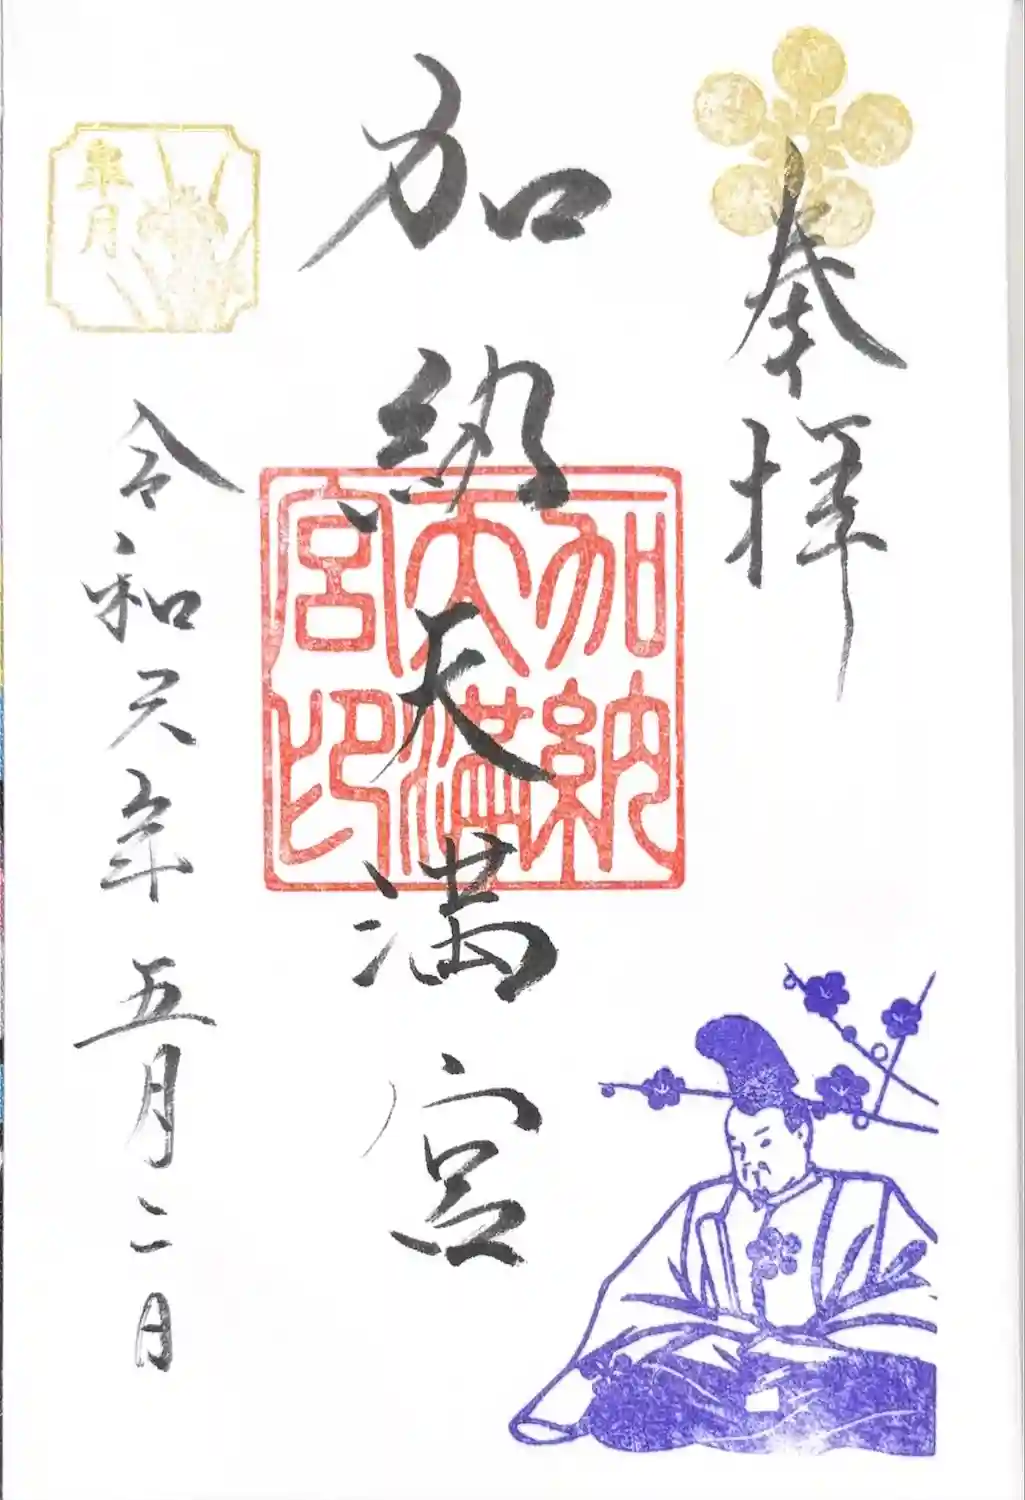 奉拝
加納天満宮
加納
天満
宮印
皐月
令和元年五月二日